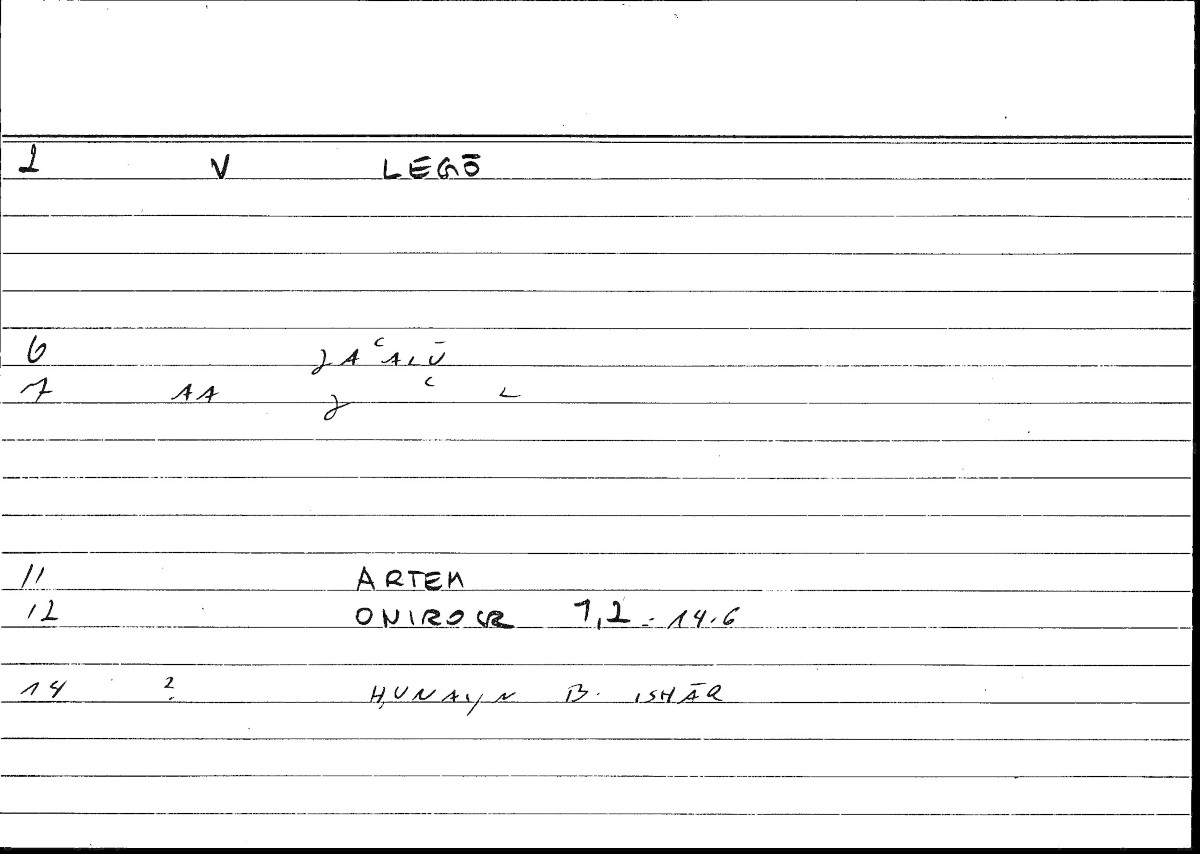 2 V LEGŌ
6 JAʿALŪ
7 AA J ʿ L
11 ARTEM
12 ONIROCR 1,2 - 14.6
14 ? ḤUNAYN B. ISHĀQ